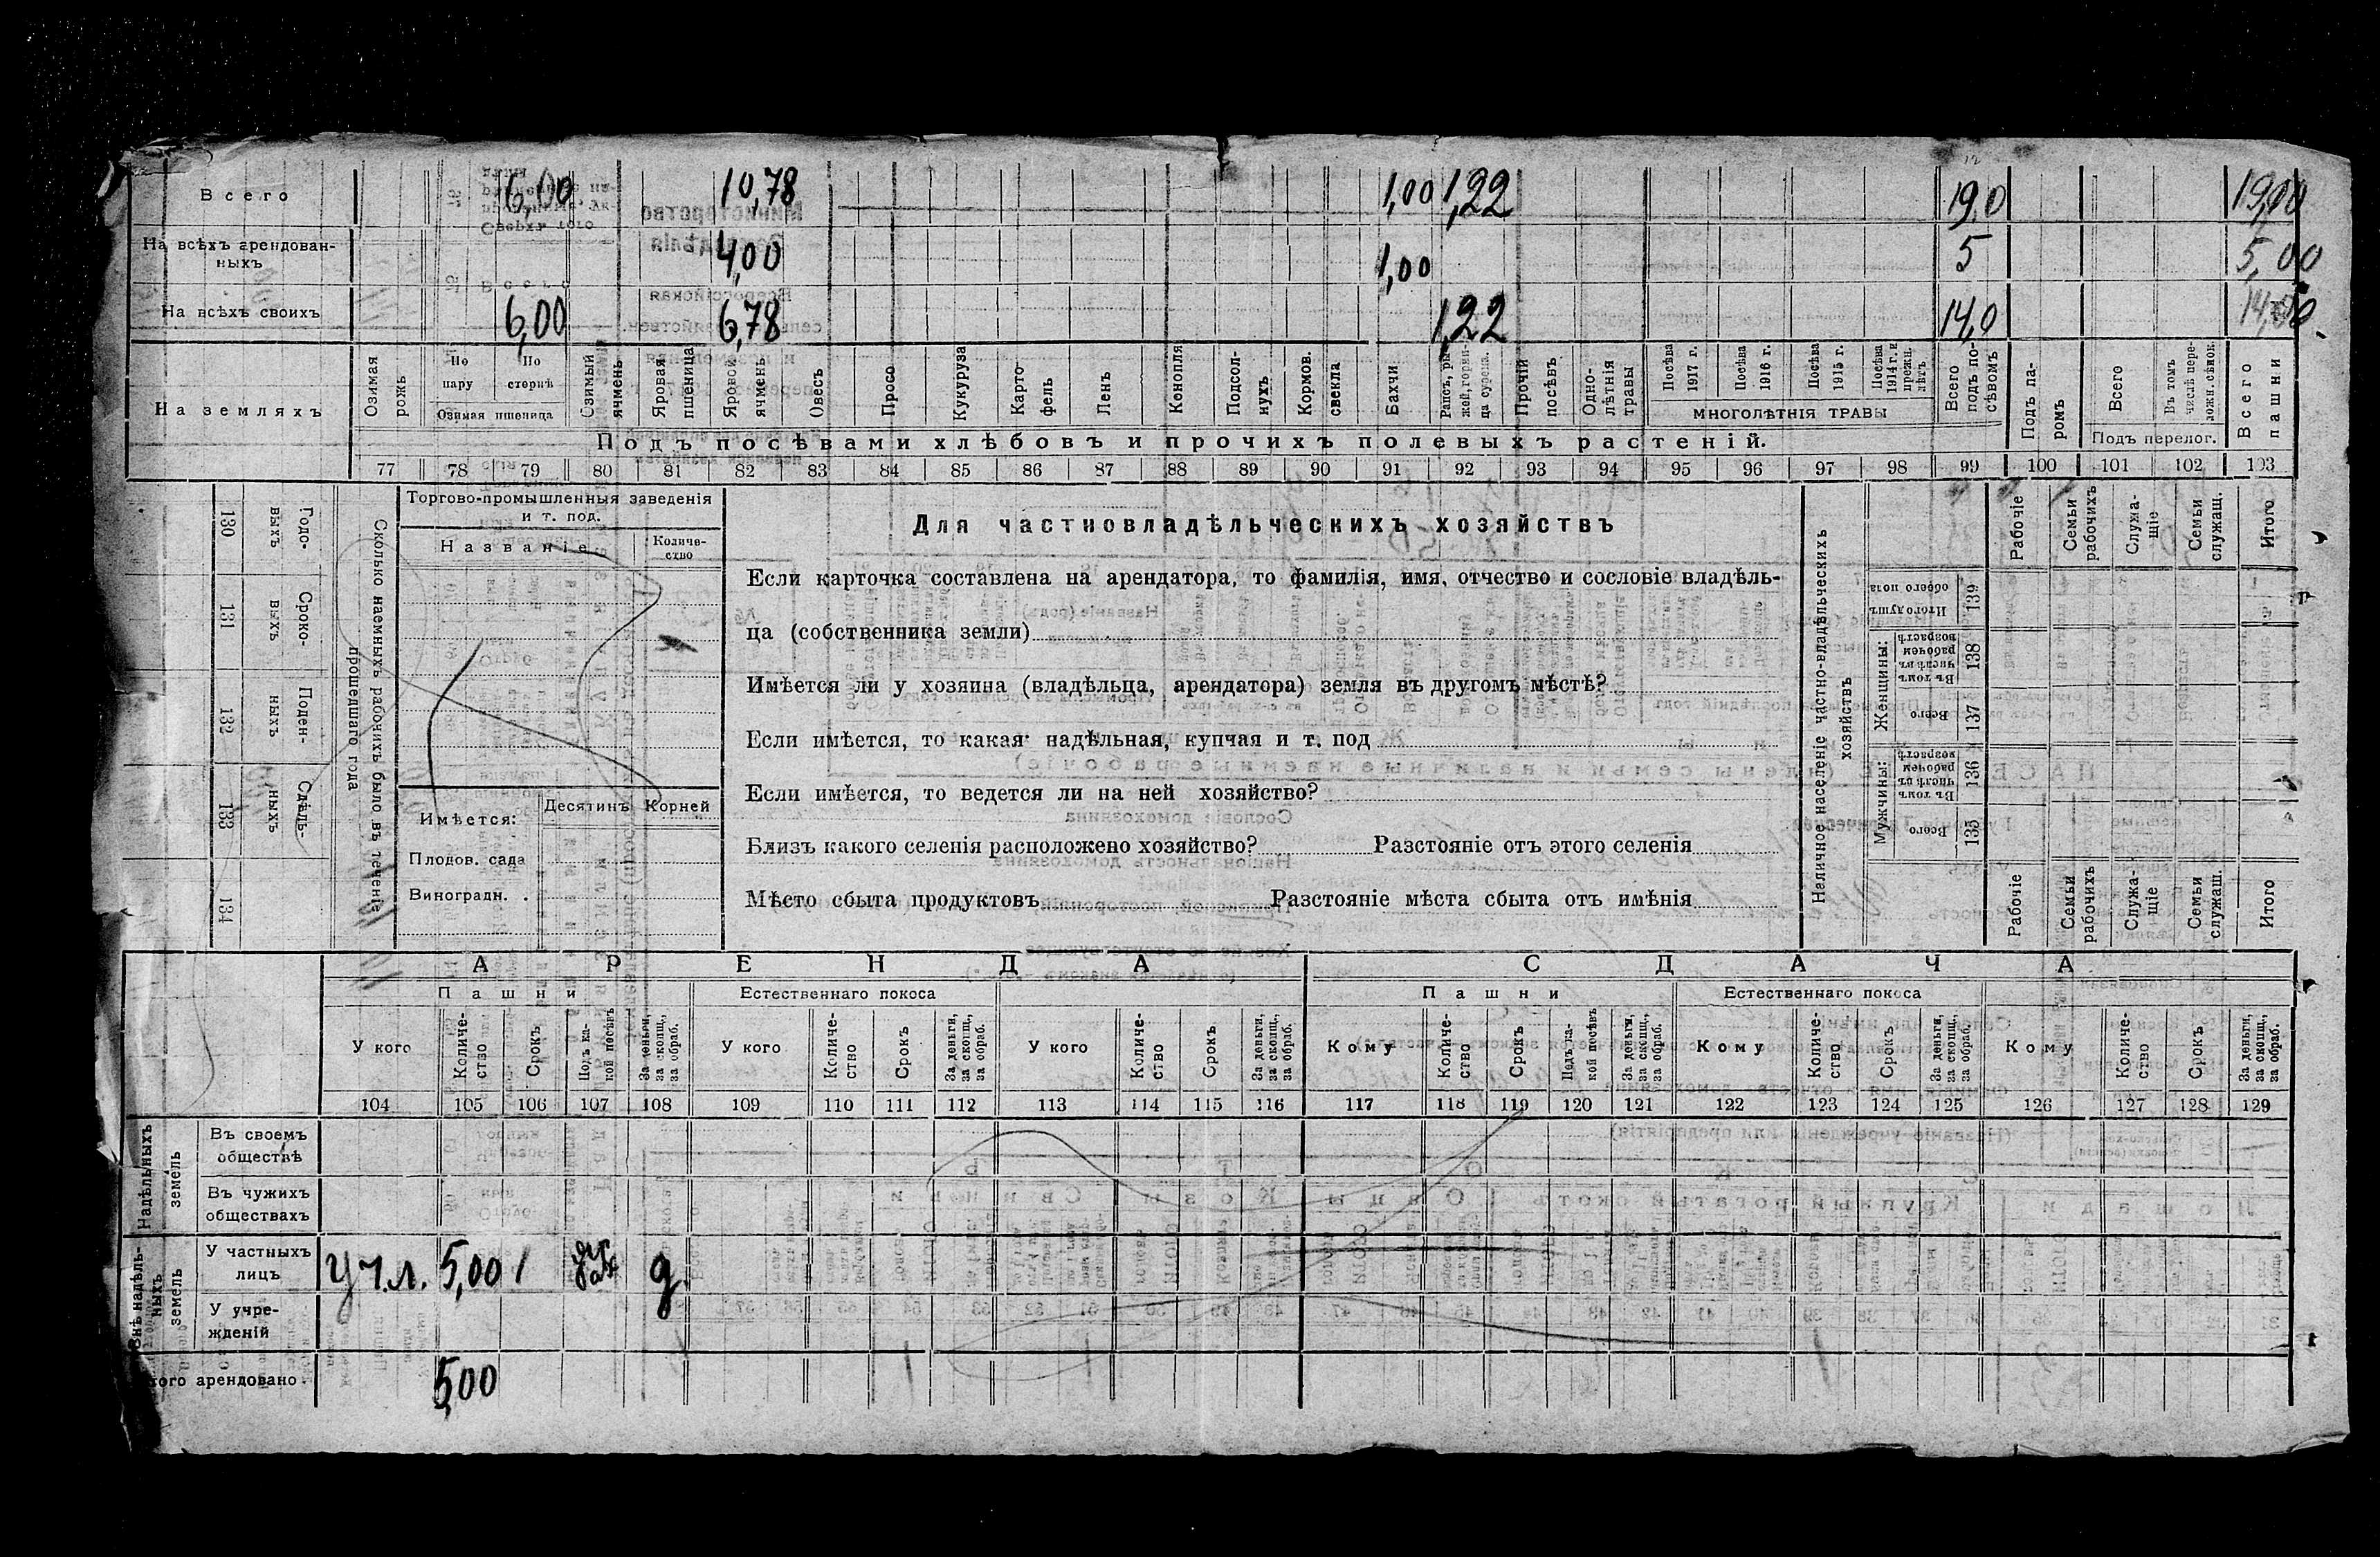 Всего 6,00 10,78 1,00 1,22 19,0 19,00
На всѣхъ арендован-
ныхъ 4,00 1,00 5 5,00
На всѣхъ своихъ 6,00 6,78 1,22 14,0 14,00
На земляхъ
Озимая рожь
По пару
По стернѣ
Озимая пшеница
Озимый ячмень
Яровая пшеница
Яровой ячмень
Овесъ
Просо
Кукуруза
Карто-
фель
Ленъ
Конопля
Подсол-
нухъ
Кормов. свекла
Бахчи
Рапсъ, ры-
жей, горчи-
ца сурепа.
Прочій посѣвъ
Одно-
лѣтнія травы
Посѣва 1917 г.
Посѣва 1916 г.
Посѣва 1915 г.
Посѣва 1914 г. и прежн. лѣтъ
МНОГОЛѢТНІЯ ТРАВЫ
Всего подъ по-
сѣвомъ
Подъ па-
ромъ
Всего
Въ томъ числѣ пере-
ложн. сѣнок.
Подъ перелог.
Всего пашни
Подъ посѣвами хлѣбовъ и прочихъ полевыхъ растеній.
77 78 79 80 81 82 83 84 85 86 87 88 89 90 91 92 93 94 95 96 97 98 99 100 101 102 103
Годо-
выхъ
130
Сроко-
выхъ
131
Поден-
ныхъ
132
Сдѣль-
ныхъ
133
134
Сколько наемныхъ рабочихъ было въ теченіе
прошедшаго года
Торгово-промышленныя заведенія
и т. под.
Названіе
Количе-
ство
Имѣется:
Десятинъ
Корней
Плодов. сада
Виноградн.
Для частновладѣльческихъ хозяйствъ
Если карточка составлена на арендатора, то фамилія, имя, отчество и сословіе владѣль-
ца (собственника земли)
Имѣется ли у хозяина (владѣльца, арендатора) земля въ другомъ мѣстѣ?
Если имѣется, то какая: надѣльная, купчая и т. под
Если имѣется, то ведется ли на ней хозяйство?
Близъ какого селенія расположено хозяйство? Разстояніе отъ этого селенія
Мѣсто сбыта продуктовъ Разстояніе мѣста сбыта отъ имѣнія
Наличное населеніе частно-владѣльческихъ
хозяйствъ
Рабочіе
Семьи рабочихъ
Служа-
щіе
Семьи служащ.
Итого
Итого душъ обоего пола
139
Женщины:
Въ томъ числѣ въ рабочем возрастѣ
138
Всего
137
Мужчины:
Въ томъ числѣ въ рабочем возрастѣ
136
Всего
135
Рабочіе
Семьи рабочихъ
Служа-
щіе
Семьи служащ.
Итого
АРЕНДА
СДАЧА
Пашни
Естественнаго покоса
Пашни
Естественнаго покоса
У кого
Количе-
ство
Срокъ
Подъ ка-
кой посѣвъ
За деньги, за скопщ., за обраб.
У кого
Количе-
ство
Срокъ
За деньги, за скопщ., за обраб.
У кого
Количе-
ство
Срокъ
За деньги, за скопщ., за обраб.
Кому
Количе-
ство
Срокъ
Подъ ка-
кой посѣвъ
За деньги, за скопщ., за обраб.
Кому
Количе-
ство
Срокъ
За деньги, за скопщ., за обраб.
Кому
Количе-
ство
Срокъ
За деньги, за скопщ., за обраб.
104 105 106 107 108 109 110 111 112 113 114 115 116 117 118 119 120 121 122 123 124 125 126 127 128 129
Надѣльныхъ
земель
Въ своемъ
обществѣ
Въ чужихъ
обществахъ
Внѣ надѣль-
ныхъ
земель
У частныхъ
лицъ
У ч.л. 5,00 1 д.
У учре-
жденій
того арендовано 5,00